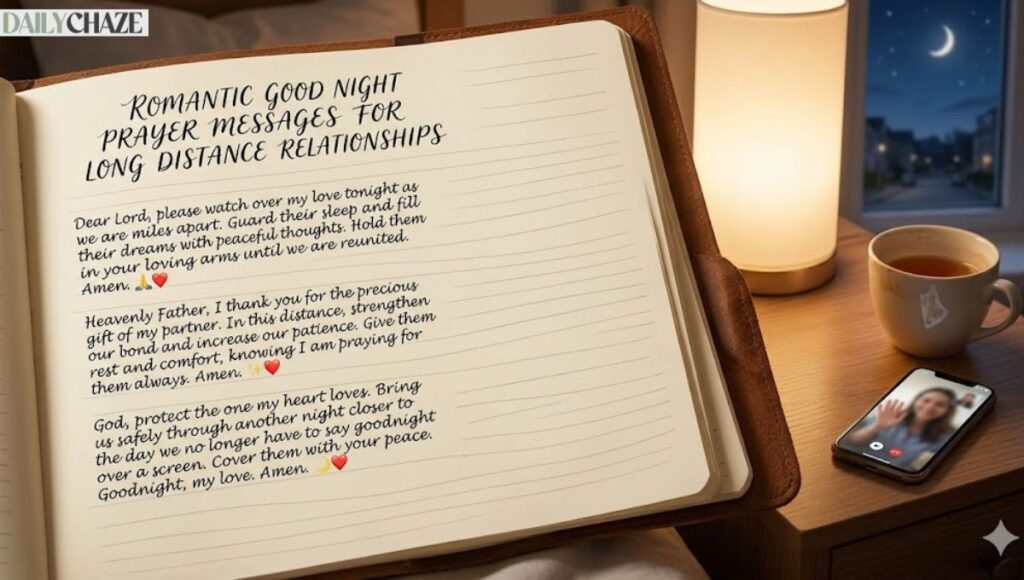 DAILYCHAZE
ROMANTIC GOOD NIGHT
PRAYER MESSAGES FOR
LONG DISTANCE RELATIONSHIPS
Dear Lord, please watch over my love tonight as
we are miles apart. Guard their sleep and fill
their dreams with peaceful thoughts. Hold them
in your loving arms until we are reunited.
Amen. 🙏❤️
Heavenly Father, I thank you for the precious
gift of my partner. In this distance, strengthen
our bond and increase our patience. Give them
rest and comfort, knowing I am praying for
them always. Amen. ✨❤️
God, protect the one my heart loves. Bring
us safely through another night closer to
the day we no longer have to say goodnight
over a screen. Cover them with your peace.
Goodnight, my love. Amen. 🌙❤️